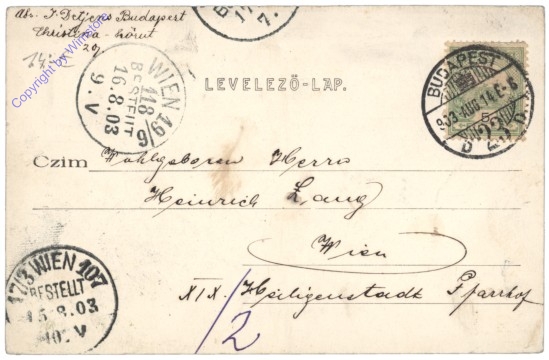 Abs. J. Detjens Budapest
Christina-körut
29.
Copyright by Winsloe's
17
7.
WIEN 19
118
BESTELLT
16.8.03
9.V
6
LEVELEZŐ-LAP.
BUDAPEST
903 AUG 14 E-6
5
Czim Wohlgeboren Herrn
Heinrich Lang
Wien
XIX/ Heiligenstadt Pfarrhof
/2
17/3 WIEN 107
BESTELLT
15.8.03
10.V